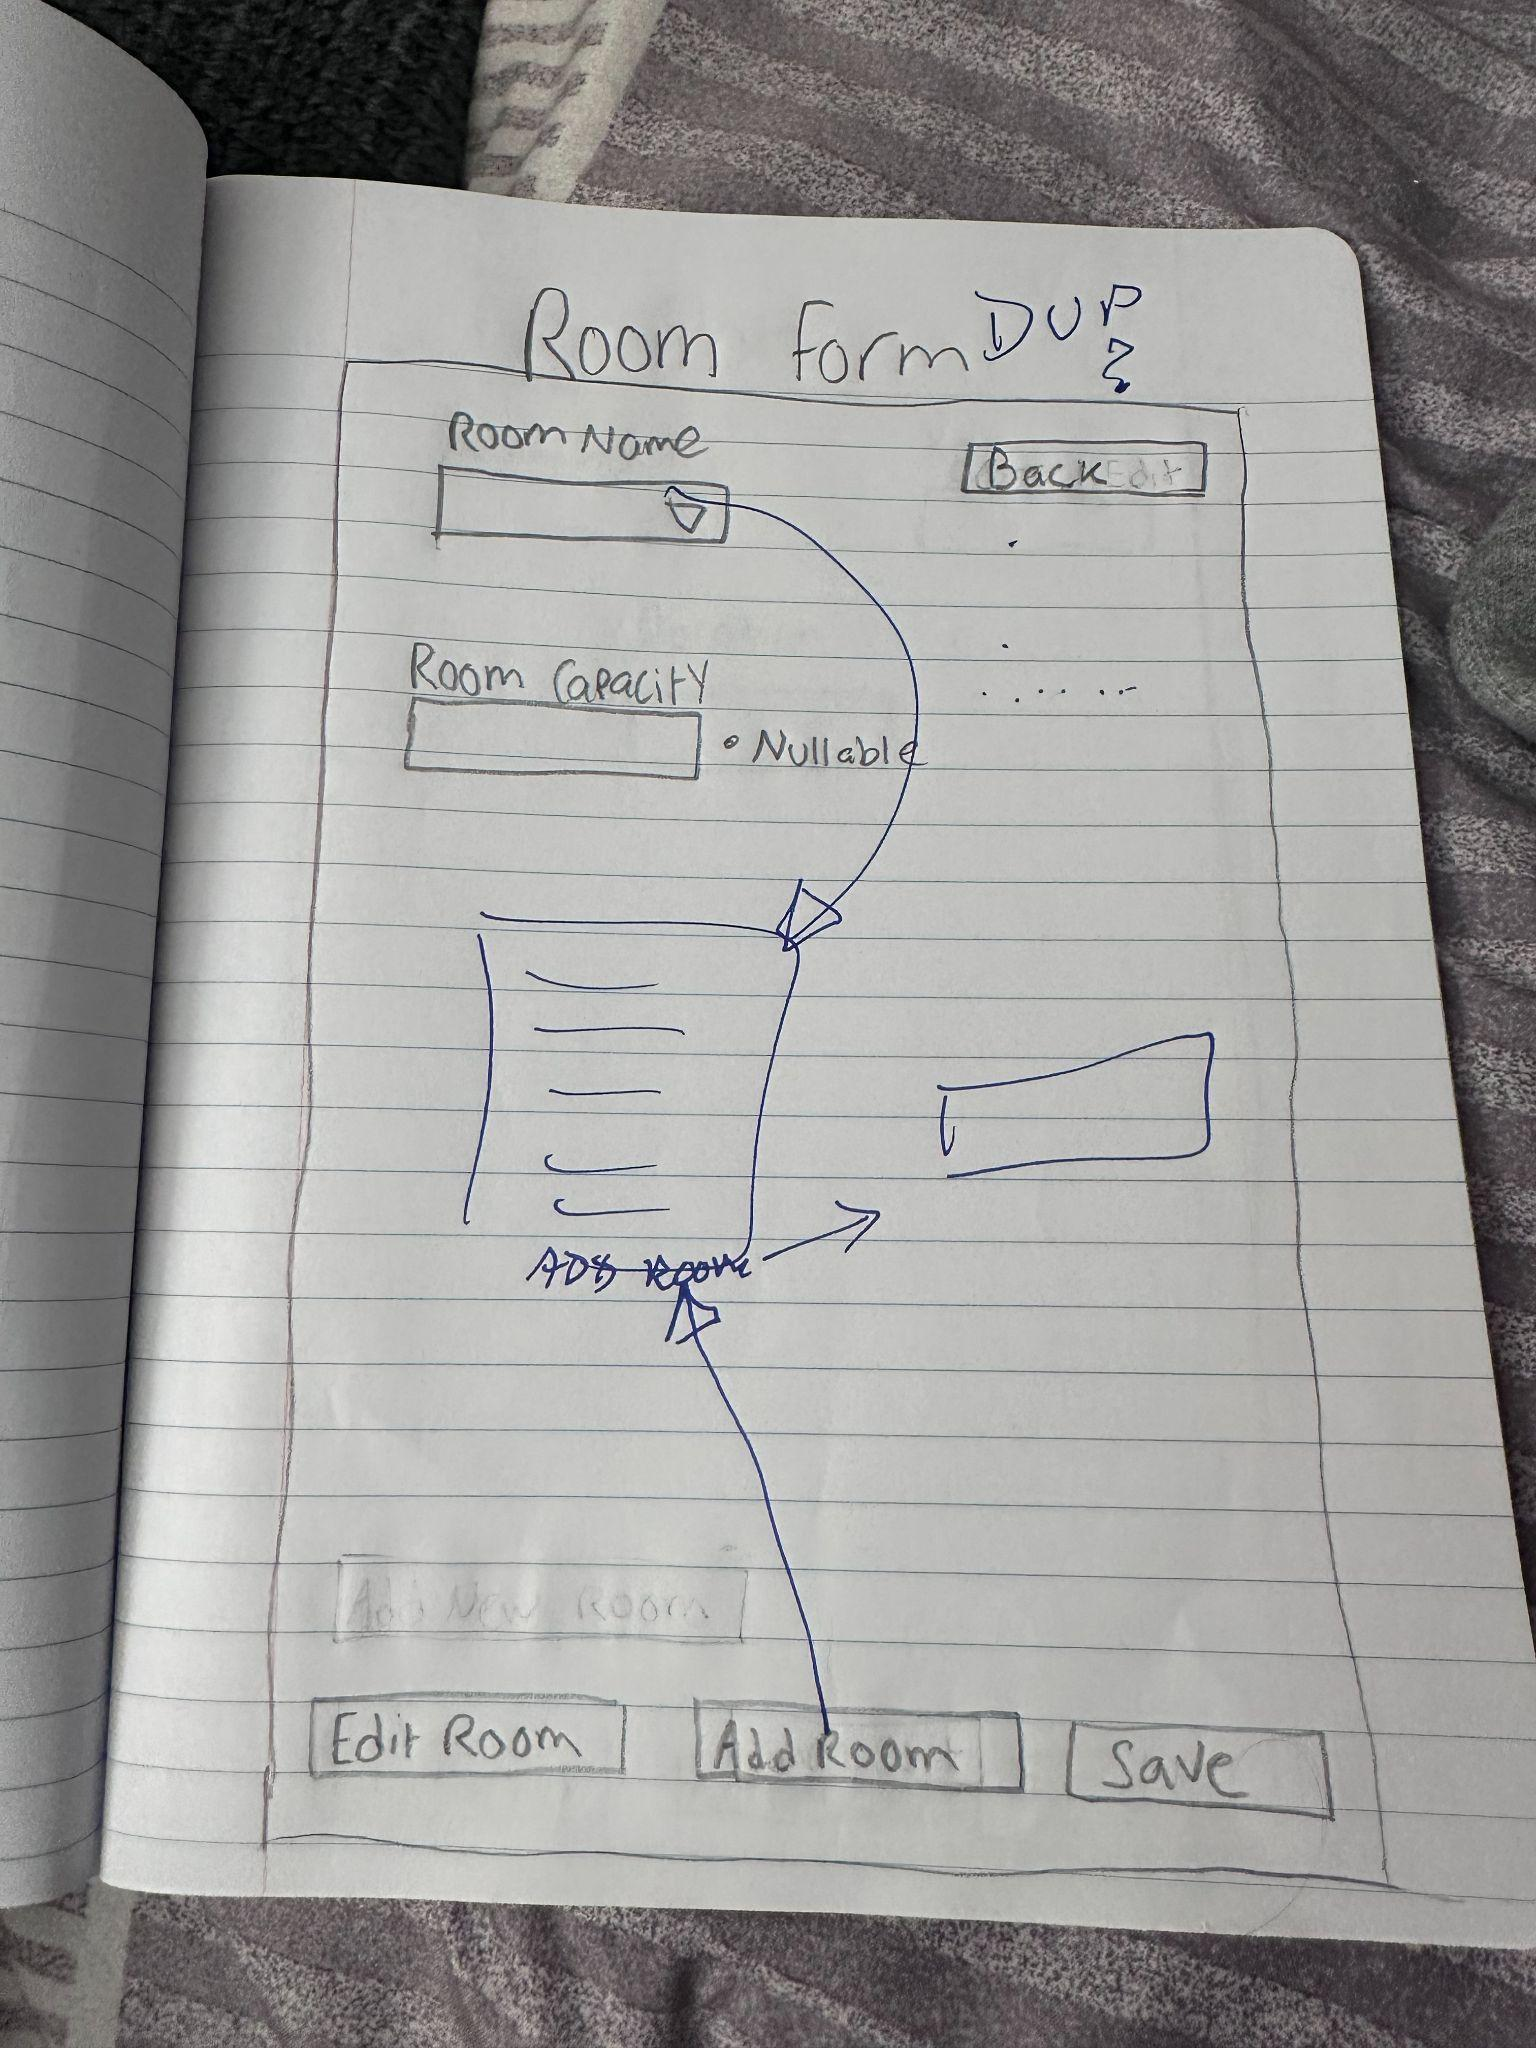 Room Form DUP
?
Room Name
Back Edit
Room Capacity
• Nullable
ADD Room
Add New Room
Edit Room
Add Room
Save